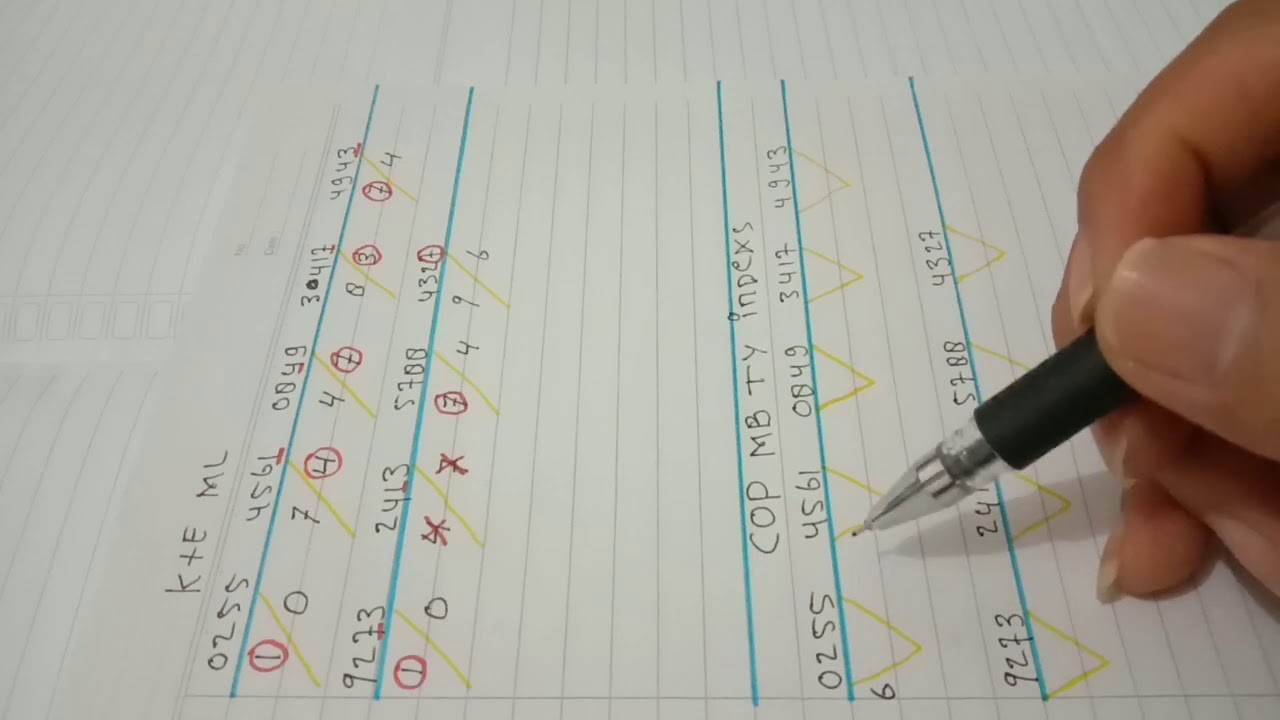 K+E ML
0255 4561 0849 3417 4943
1 0 7 4 4 7 8 3 7 4
9273 2413 5788 4327
1 0 7 4 9 6
COP MB TY indexs
0255 4561 0849 3417 4943
6
9273 24 5788 4327